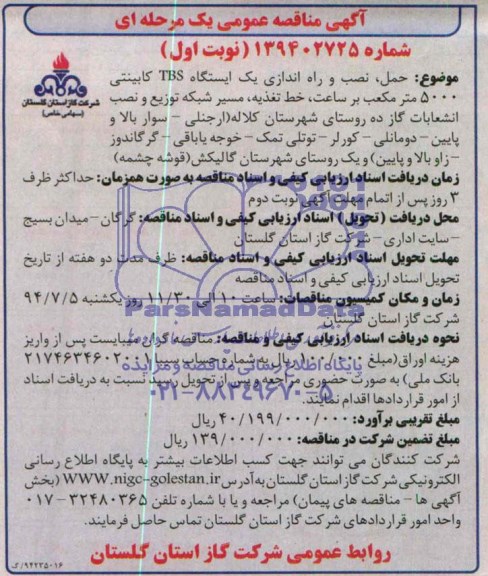 آگهی مناقصه عمومی یک مرحله ای
شماره ۱۳۹۴۰۲۷۲۵ (نوبت اول)
شرکت گاز استان گلستان
(سهامی خاص)
موضوع: حمل، نصب و راه اندازی یک ایستگاه TBS کابینتی
۵۰۰۰ متر مکعب بر ساعت، خط تغذیه، مسیر شبکه توزیع و نصب
انشعابات گاز ده روستای شهرستان کلاله(ارجنلی – سوار بالا و
پایین – دومانلی – کورلر – توتلی تمک – خوجه یاپاقی – گرگاندوز
– زاو بالا و پایین) و یک روستای شهرستان گالیکش(قوشه چشمه)
زمان دریافت اسناد ارزیابی کیفی و اسناد مناقصه به صورت همزمان: حداکثر ظرف
۳ روز پس از اتمام مهلت آگهی نوبت دوم
محل دریافت (تحویل) اسناد ارزیابی کیفی و اسناد مناقصه: گرگان – میدان بسیج
– سایت اداری – شرکت گاز استان گلستان
مهلت تحویل اسناد ارزیابی کیفی و اسناد مناقصه: ظرف مدت دو هفته از تاریخ
تحویل اسناد ارزیابی کیفی و اسناد مناقصه
زمان و مکان کمیسیون مناقصات: ساعت ۱۰ الی ۱۱/۳۰ روز یکشنبه ۹۴/۷/۵
شرکت گاز استان گلستان
ParsNamadData
نحوه دریافت اسناد ارزیابی کیفی و مناقصه: مناقصه گران میبایست پس از واریز
هزینه اوراق(مبلغ ۱۰۰/۰۰۰ ریال به شماره حساب سیبا ۲۱۷۴۶۳۴۶۰۲۰۰۱
پایگاه اطلاع رسانی مناقصه و مزایده
بانک ملی) به صورت حضوری مراجعه و پس از تحویل رسید نسبت به دریافت اسناد
از امور قراردادها اقدام نمایند.
۰۲۱-۸۸۳۴۹۶۷۰-۵
مبلغ تقریبی برآورد: ۴۰/۱۹۹/۰۰۰/۰۰۰ ریال
مبلغ تضمین شرکت در مناقصه: ۱۳۹/۰۰۰/۰۰۰ ریال
شرکت کنندگان می توانند جهت کسب اطلاعات بیشتر به پایگاه اطلاع رسانی
الکترونیکی شرکت گاز استان گلستان به آدرس WWW.nigc-golestan.ir (بخش
آگهی ها – مناقصه های پیمان) مراجعه و یا با شماره تلفن ۳۲۴۸۰۳۶۵ – ۰۱۷
واحد امور قراردادهای شرکت گاز استان گلستان تماس حاصل فرمایند.
روابط عمومی شرکت گاز استان گلستان
۹۴۲۳۵۰۱۶/ک